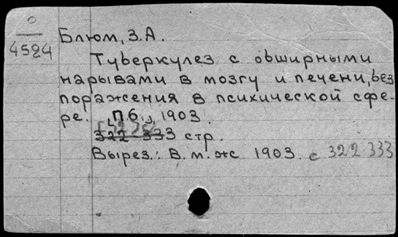 0
4584
Блюм, З.А.
Туберкулез с обширными
нарывами в мозгу и печени, без
поражения в психической сфе-
ре. [Пб.], 1903.
322-333 стр.
Вырез.: В.м.ж 1903. с 322-333